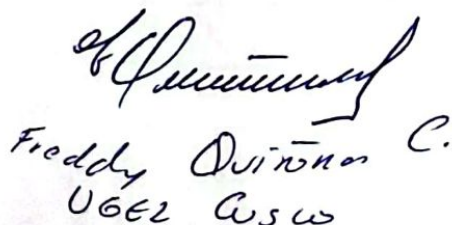 Freddy Quiñones C.
UGEL Cusco